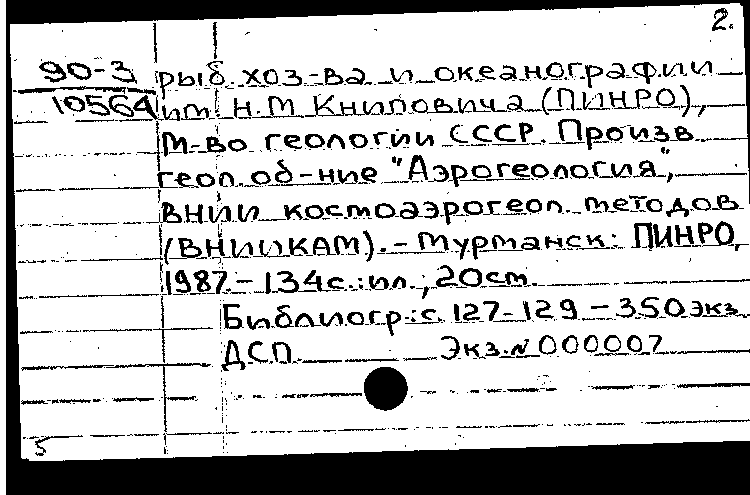 2.
90-3
10564
рыб. хоз-ва и океанографии
им. Н.М Книповича (ПИНРО),
М-во геологии СССР. Произв.
геол. об-ние "Аэрогеология",
ВНИИ космоаэрогеол. методов
(ВНИИКАМ). - Мурманск: ПИНРО,
1987. - 134с.: ил.; 20см.
Библиогр.: с. 127-129 - 350 экз.
ДСП. Экз. № 000007
5